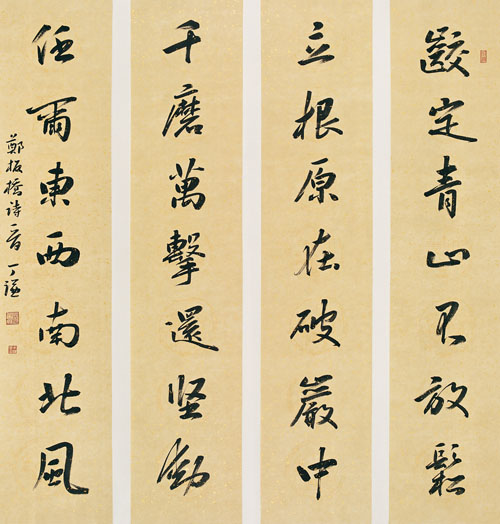 齩定青山不放鬆
立根原在破巖中
千磨萬擊還坚勁
任爾東西南北風
鄭板橋詩一首 丁謙